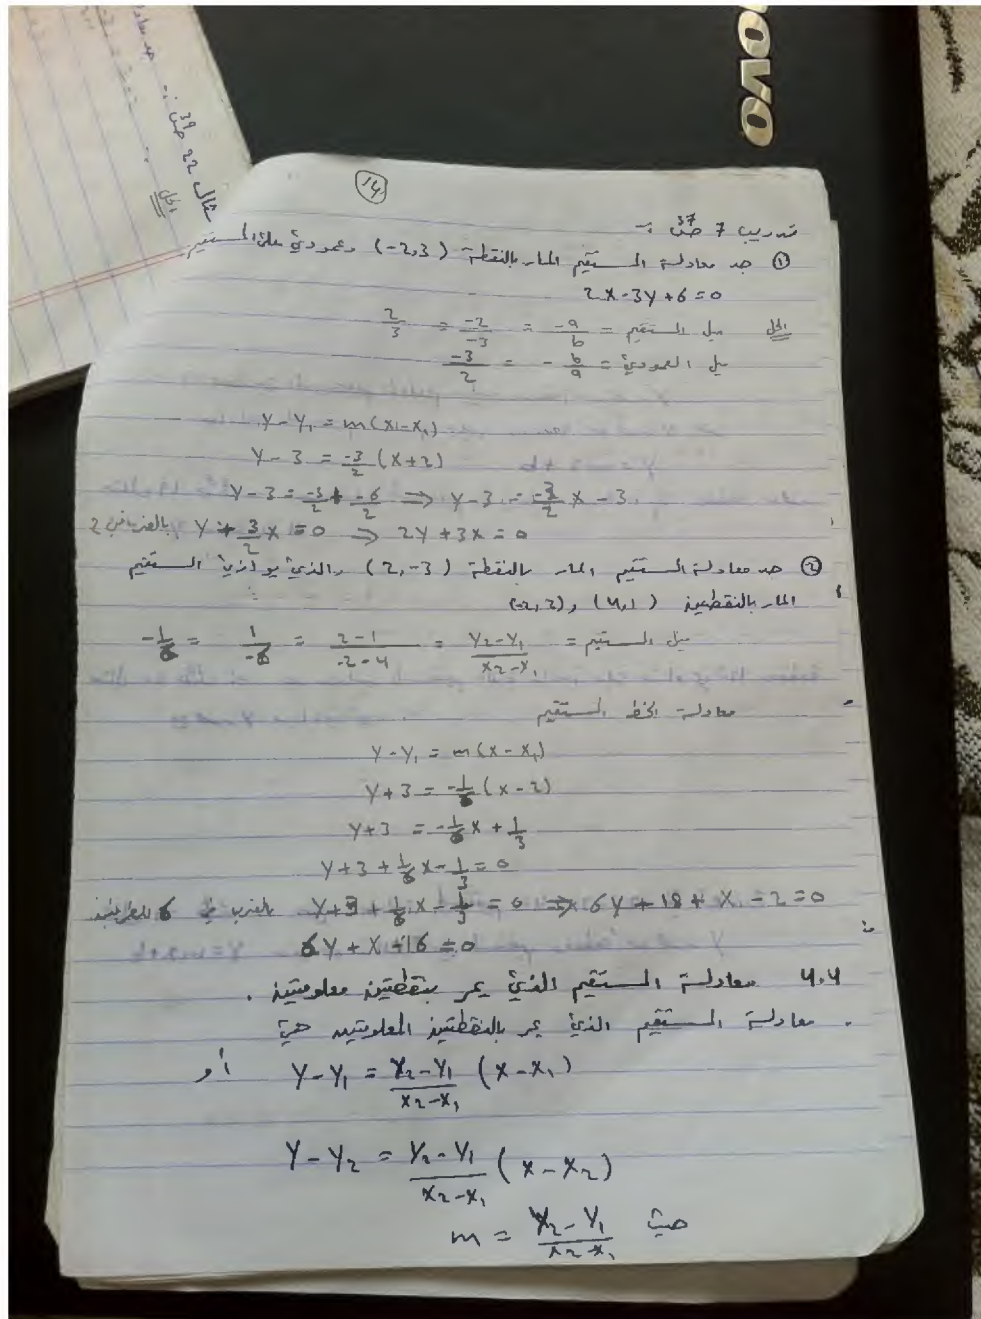 novo
جد معادلة
مثال 22 ص 39 :-
الحل
14
تدريب 7 ص 37 :-
① جد معادلة المستقيم المار بالنقطة (-2,3) وعمودي على المستقيم
2x-3y+6=0
الحل ميل المستقيم = -a/b = -2/-3 = 2/3
ميل العمودي = - b/a = -3/2
y-y₁ = m(x-x₁)
y-3 = -3/2 (x+2)
y-3 = -3/2 + -6/2 ⇒ y-3 = -3/2 x - 3
y + 3/2 x = 0 ⇒ 2y+3x=0 بالضرب في 2
② جد معادلة المستقيم المار بالنقطة (2,-3) والذي يوازي المستقيم
المار بالنقطتين (4,1) و (-2,2)
ميل المستقيم = y₂-y₁/x₂-x₁ = 2-1/-2-4 = 1/-6 = -1/6
معادلة الخط المستقيم
y-y₁ = m(x-x₁)
y+3 = -1/6 (x-2)
y+3 = -1/6 x + 1/3
y+3+1/6 x - 1/3 = 0
y+3+1/6 x - 1/3 = 0 ⇒ 6y+18+x-2=0 بالضرب في 6 للطرفين
6y+x+16=0
4.4 معادلة المستقيم الذي يمر بنقطتين معلومتين .
. معادلة المستقيم الذي يمر بالنقطتين المعلومتين هي
y-y₁ = y₂-y₁/x₂-x₁ (x-x₁) أو
y-y₂ = y₂-y₁/x₂-x₁ (x-x₂)
حيث m = y₂-y₁/x₂-x₁